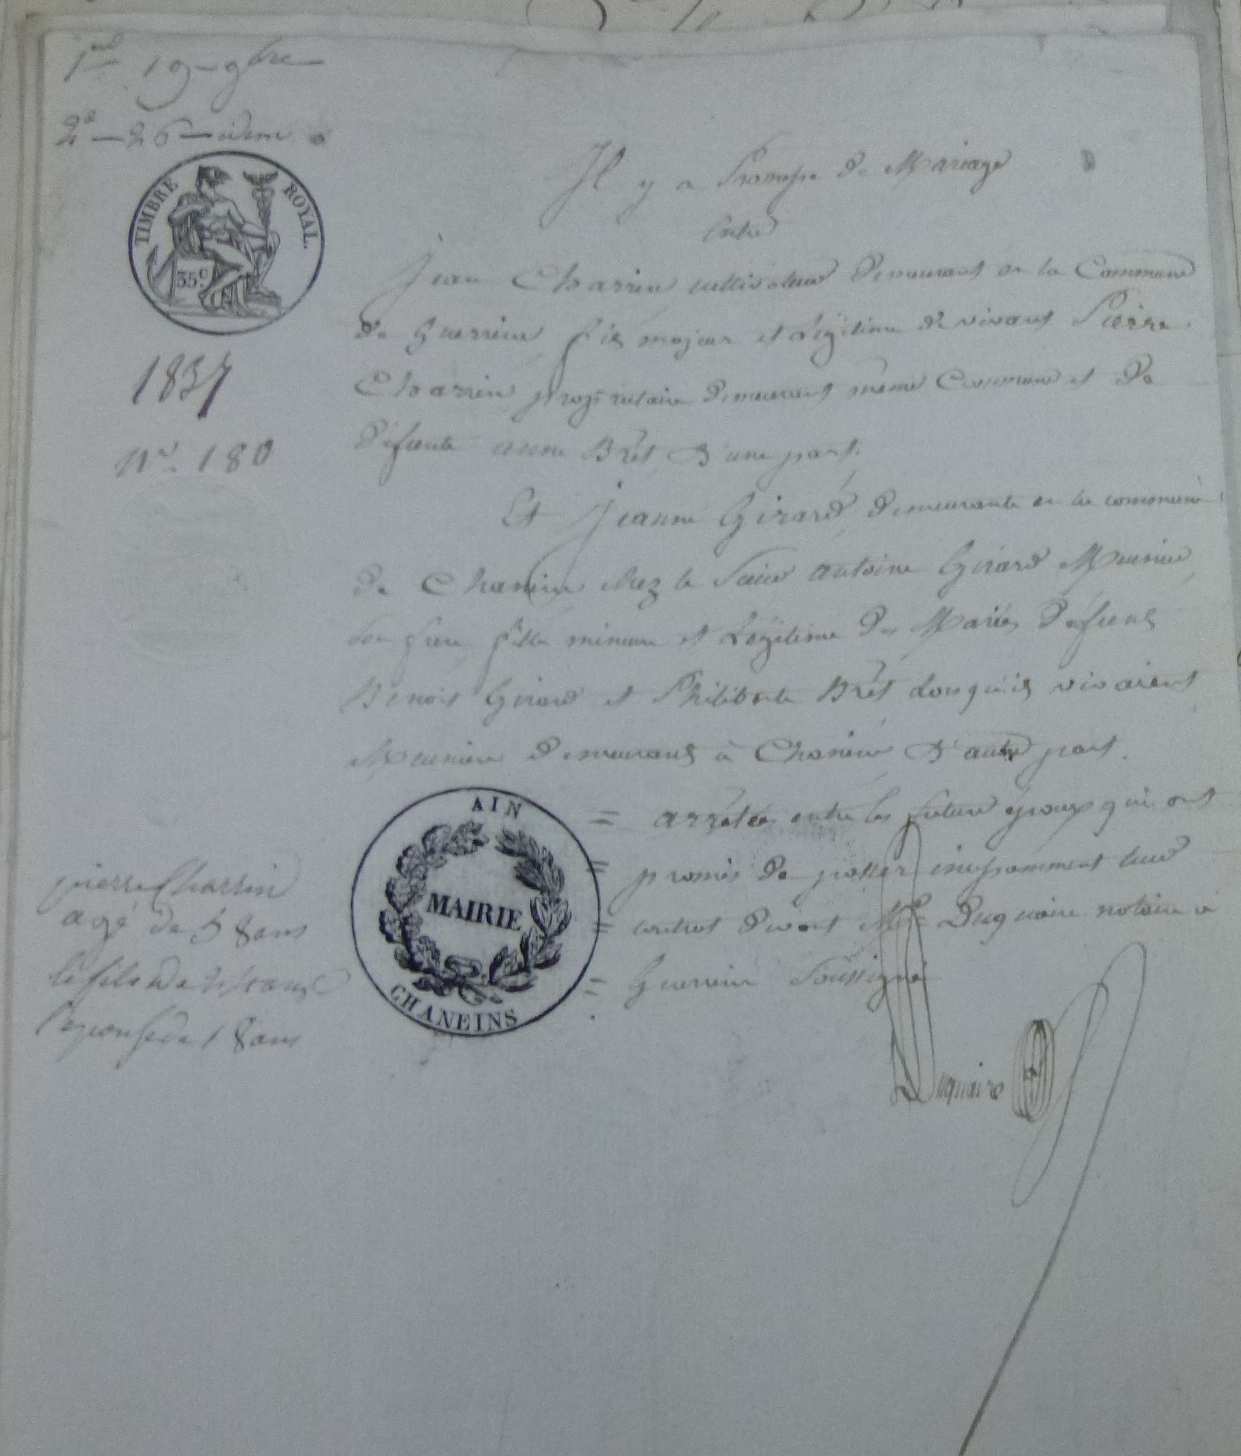 1re 19 - 9bre
2e - 26 - idem
TIMBRE ROYAL.
35 c.
1837
No. 180
Il y a Promesse de Mariage
Entre
Jean Charrin cultivateur demeurant en la Commune
de Guerrein fils majeur et légitime de vivant Pierre
Charrin propriétaire demeurant même Commune et de
défunte anne Brêt d'une part.
Et Jeanne Girard demeurante en la commune
de Chanein chez le Sieur antoine Girard Meunier
son frere fille mineure et Légitime des Mariés défunts
Benoit Girard et Philiberte Brêt Lorsqu'ils vivaient
Meuniers demeurants à Chanein d'autre part.
= arrêtées entre les futurs époux qui ont
= promis de passer incessamment leur
= contrat devant Me Duquaire notaire à
= Guerrein Soussigné
Duquaire
AIN
MAIRIE
CHANEINS
pierre Charrin
agé de 58 ans
le fils de ans
l'epouse de 18 ans